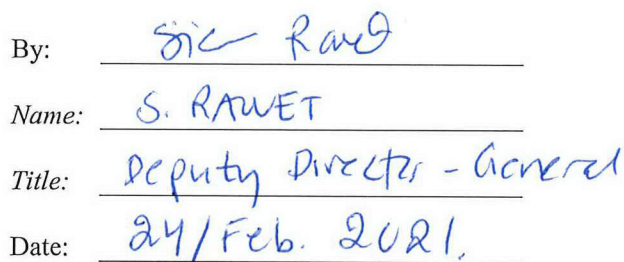 By:
Name: S. RAWET
Title: Deputy Director - General
Date: 24/Feb. 2021.